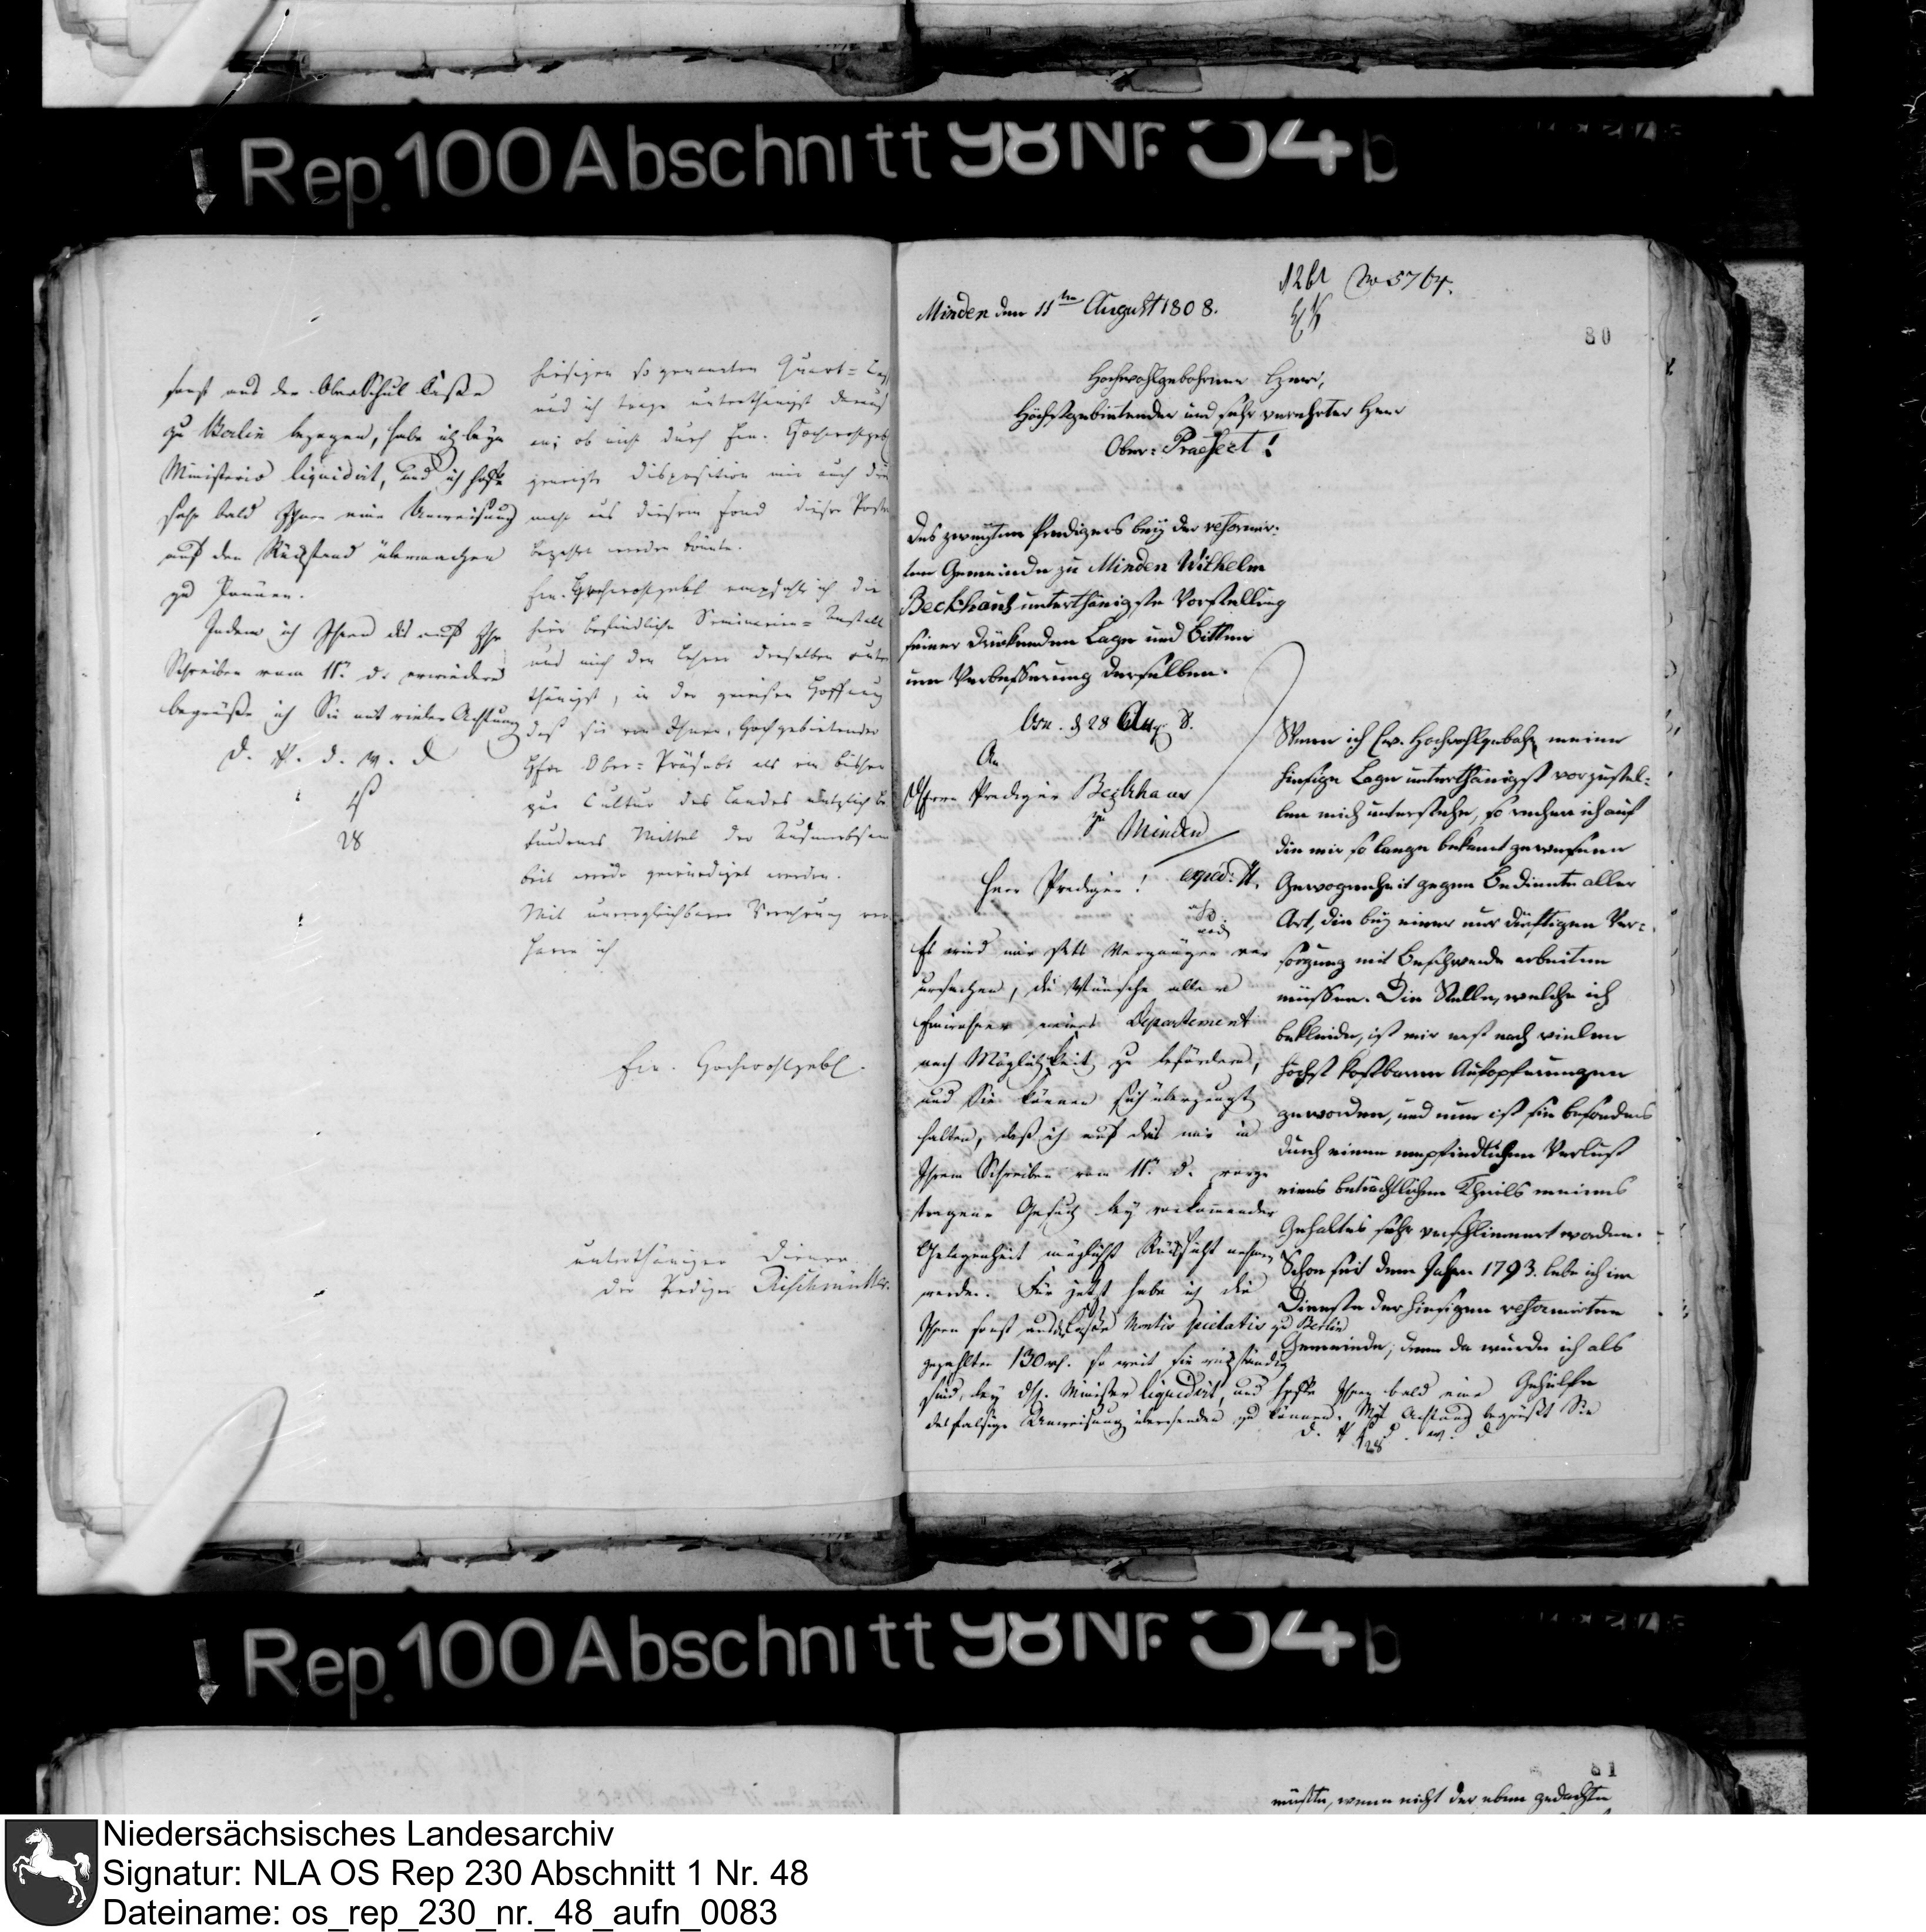 Rep. 100 Abschnitt 98 Nr. 54 b
sonst aus der OberSchul Casse
zu Berlin bezogen, habe ich beym
Ministerio liquidirt, und ich hoffe
sehr bald Ihnen eine Anweisung
auf den Rückstand übermachen
zu können.
Indem ich Ihnen dis auf Ihr
Schreiben vom 11n d. erwiedere
begrüße ich Sie mit vieler Achtung
D. P. d. W. D
28
hiesigen so genannten Quart-
und ich trage unterthänigst darauf
an, ob nicht durch Ew. Hochwohlgeb
geneigte disposition mir auch
mehr aus diesem Fond dieser Posten
bezahlt werden könnte.
Ew. Hochwohlgebl empfehle ich die
hier befindliche Seminarien-Anstalt
und mich den Lehrer derselben unter
thänigst, in der gewissen Hoffnung
daß sie von Ihnen, Hochgebietender
Herr Ober-Präfekt als ein bisher
zur Cultur des Landes nützlich be
fundenes Mittel der Aufmerksam
keit werde gewürdiget werden.
Mit unvergleichbarer Verehrung ver
harre ich
Ew. Hochwohlgebl.
unterthäniger Diener
der Prediger Rischmüller.
1261 No 5764.
Minden den 11ten August 1808.
80
Hochwohlgebohrner Herr,
Höchstgebietender und sehr verehrter Herr
Ober-Praefect!
Des zweyten Predigers bey der reformir-
ten Gemeinde zu Minden Wilhelm
Beckhaus unterthänigste Vorstellung
seiner drückenden Lage und Bitten
um Verbesserung derselben.
Osn. d 28 Aug 8.
An
Herrn Prediger Beckhaus
zu Minden
Herr Prediger! exped.
Es wird mir stets Vergnügen ver
ursachen, die Wünsche aller
Einwohner meines Departement
nach Möglichkeit zu befördern,
und Sie können sich überzeugt
halten, daß ich auf das mir in
Ihrem Schreiben vom 11n d. vorge
tragene Gesuch bey vorkommender
Gelegenheit möglichst Rücksicht nehmen
werde. Für jetzt habe ich die
Ihnen sonst aus der Casse Montis pietatis zu Berlin
gezahlten 130 rh. so weit sie rückständig
sind, bey dH. Minister liquidirt, und hoffe Ihnen bald eine
desfalsige Anweisung übersenden zu können. Mit Achtung begrüßt Sie
D. P. d. W. D
28
Wenn ich Ew. Hochwohlgebohr meine
hiesige Lage unterthänigst vorzustel-
len mich unterstehe, so rechne ich auf
die mir so lange bekant gewesene
Gewogenheit gegen Bediente aller
Art, die bey einer nur dürftigen Ver-
sorgung mit Beschwerde arbeiten
müssen. Die Stelle, welche ich
bekleide, ist mir erst nach vielen
höchst kostbaren Aufopferungen
geworden, und nun ist sie besonders
durch einen empfindlichen Verlust
eines beträchtlichen Theils meines
Gehaltes sehr verschlimmert worden.
Schon seit dem Jahre 1793. lebe ich im
Dienste der hiesigen reformirten
Gemeinde, denn da wurde ich als
Gehülfe
Rep. 100 Abschnitt 98 Nr. 54 b
81
müßte, wenn nicht der eben gedachte
Niedersächsisches Landesarchiv
Signatur: NLA OS Rep 230 Abschnitt 1 Nr. 48
Dateiname: os_rep_230_nr._48_aufn_0083